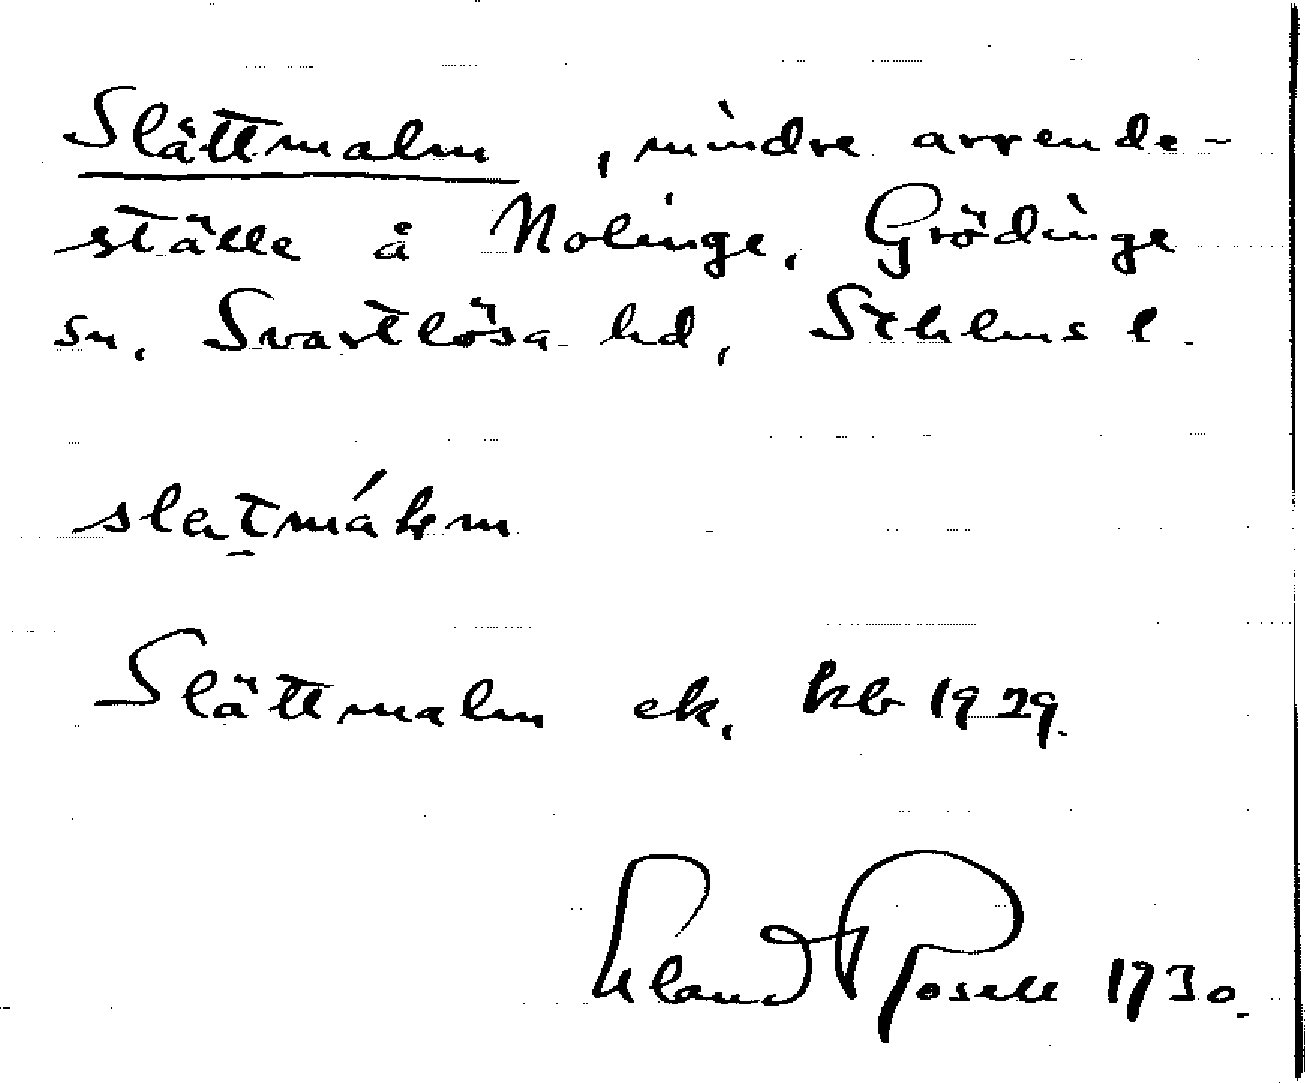 Slättmalm, mindre arrende-
ställe å Nolinge, Grödinge
sn, Svartlösa hd, Sthlms l.
Slättmalm ek, kb 1929.
Erland Rosell 1930.